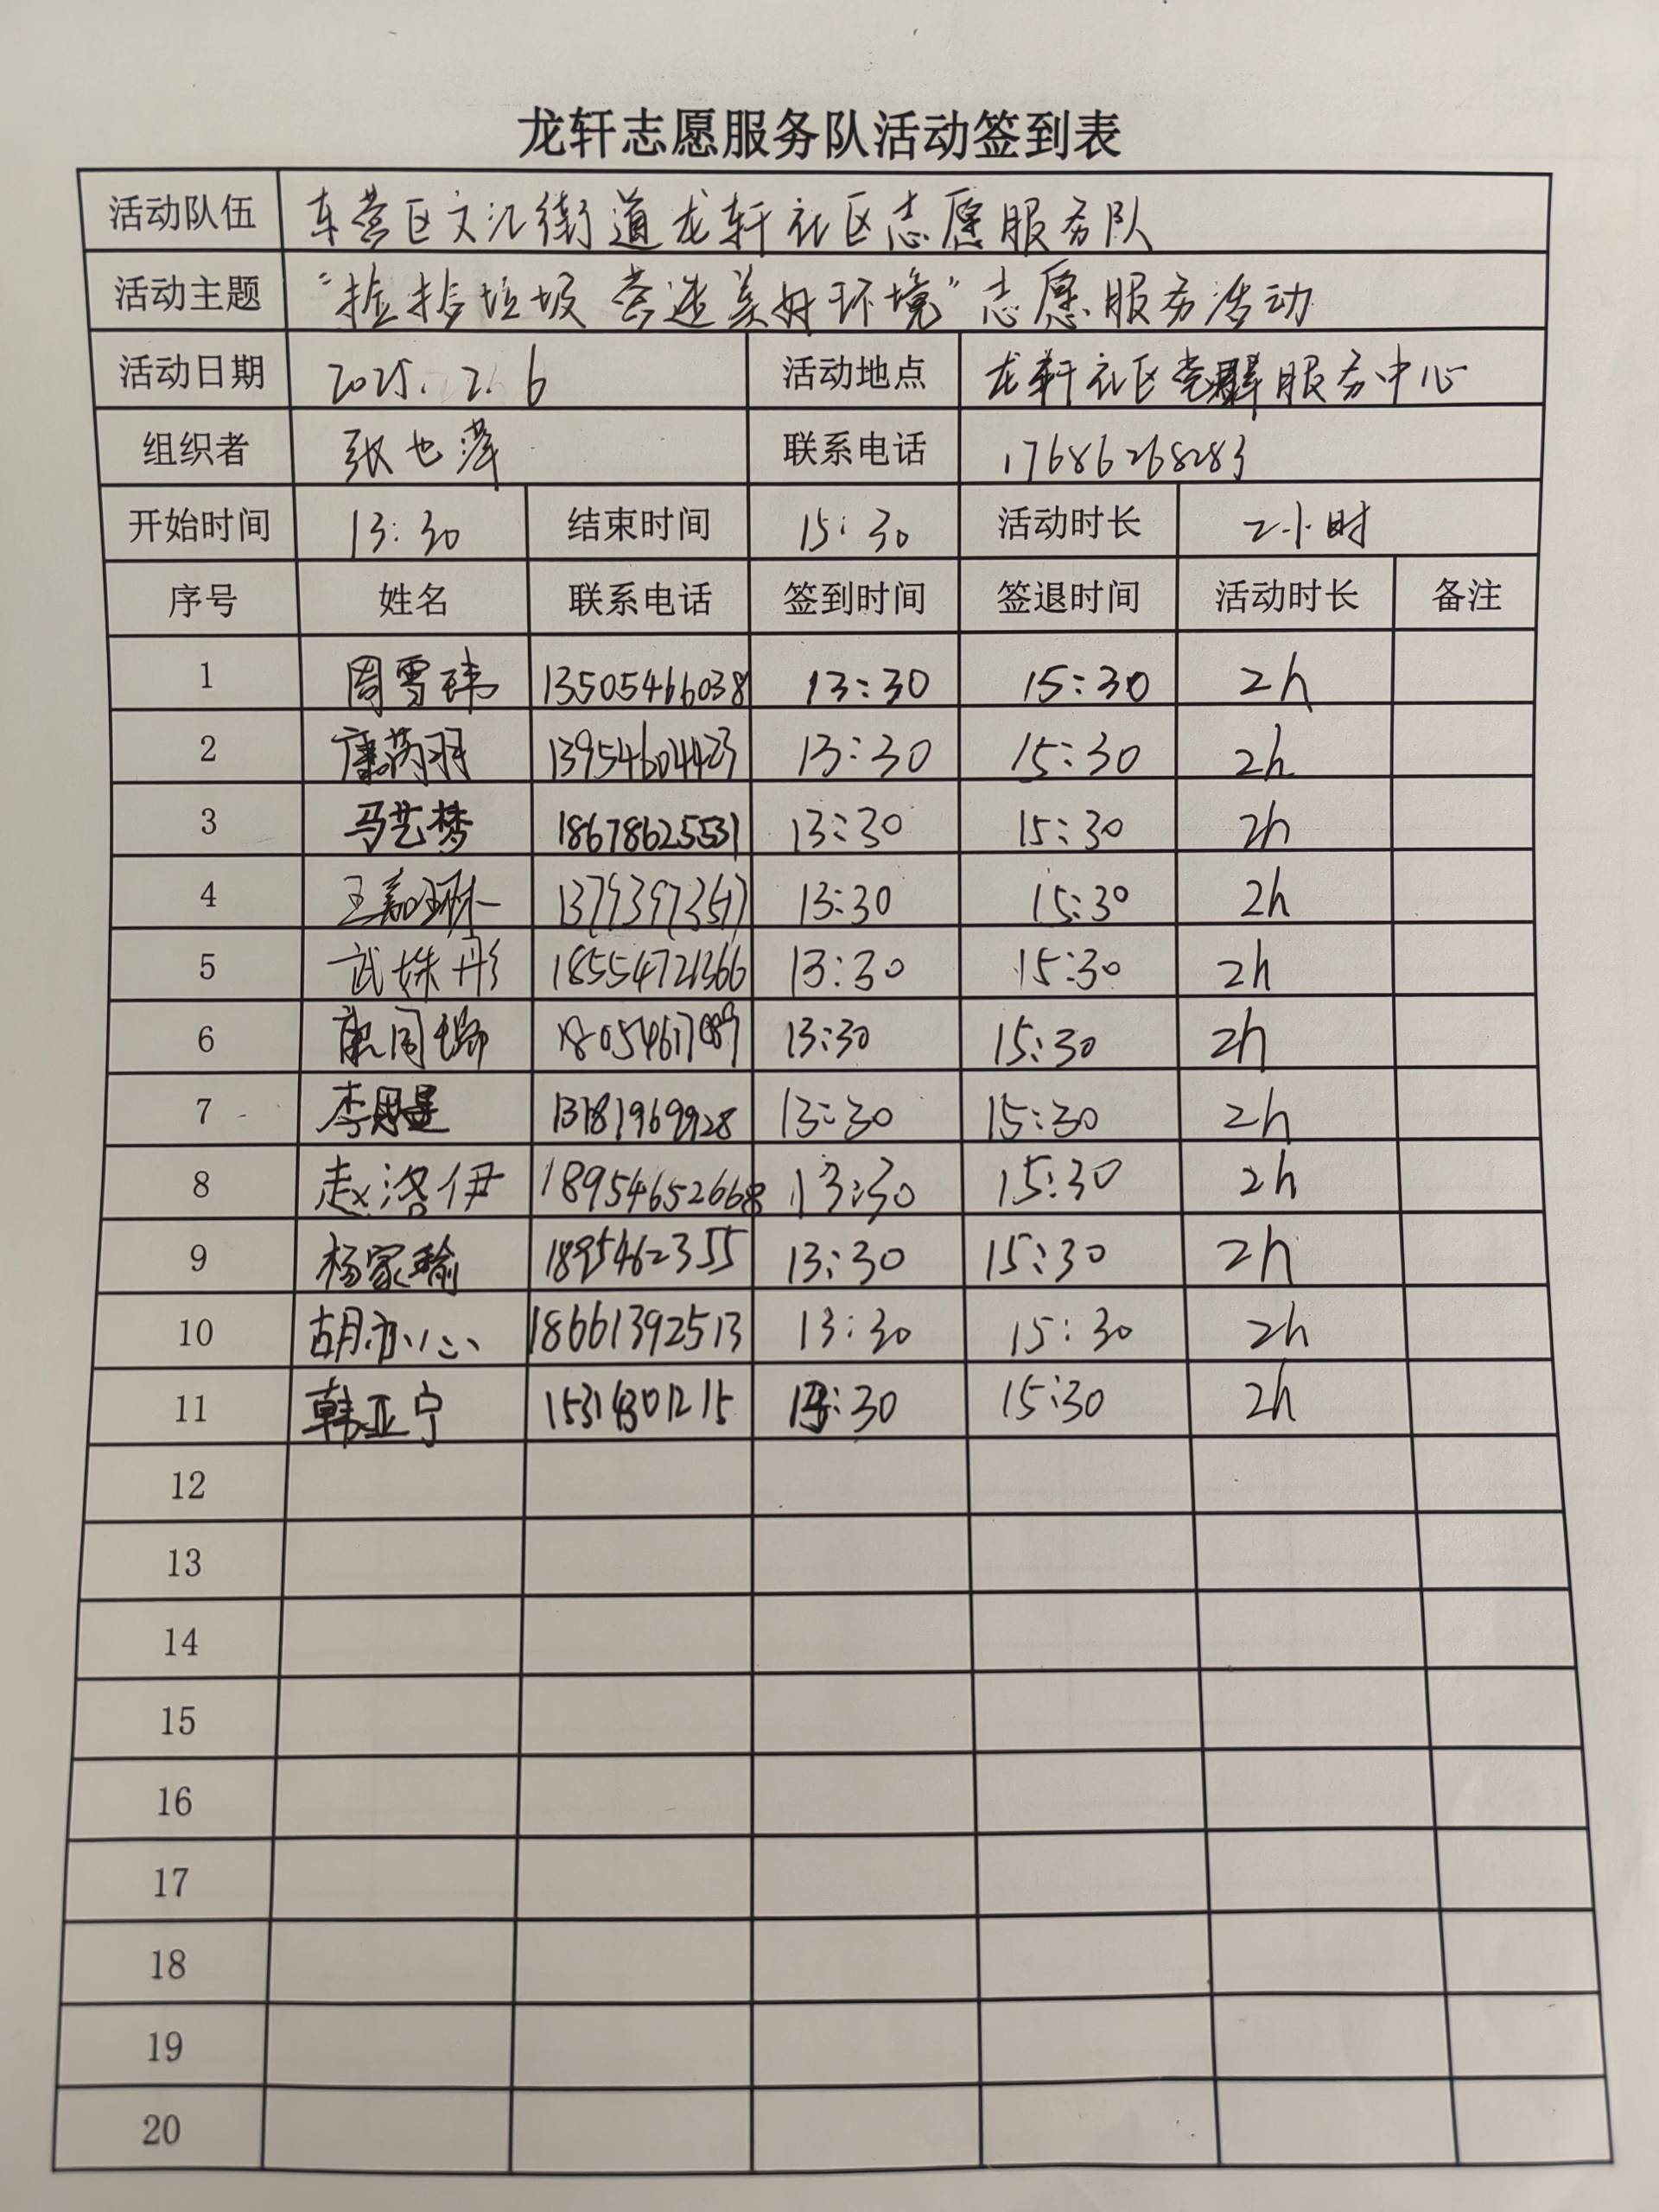 龙轩志愿服务队活动签到表
活动队伍 东营区文汇街道龙轩社区志愿服务队
活动主题 “捡拾垃圾 营造美好环境”志愿服务活动
活动日期 2025.2.6 活动地点 龙轩社区党群服务中心
组织者 张也 联系电话 17686268283
开始时间 13:30 结束时间 15:30 活动时长 2小时
序号 姓名 联系电话 签到时间 签退时间 活动时长 备注
1 周雪玮 13505466038 13:30 15:30 2h
2 康芮羽 13954604423 13:30 15:30 2h
3 马艺梦 18678625531 13:30 15:30 2h
4 王嘉琳 13:30 15:30 2h
5 武姝彤 18554721366 13:30 15:30 2h
6 13:30 15:30 2h
7 李 13181969928 13:30 15:30 2h
8 赵洛伊 18954652668 13:30 15:30 2h
9 杨家瑜 1895462355 13:30 15:30 2h
10 胡亦心 18661392513 13:30 15:30 2h
11 韩亚宁 13:30 15:30 2h
12
13
14
15
16
17
18
19
20